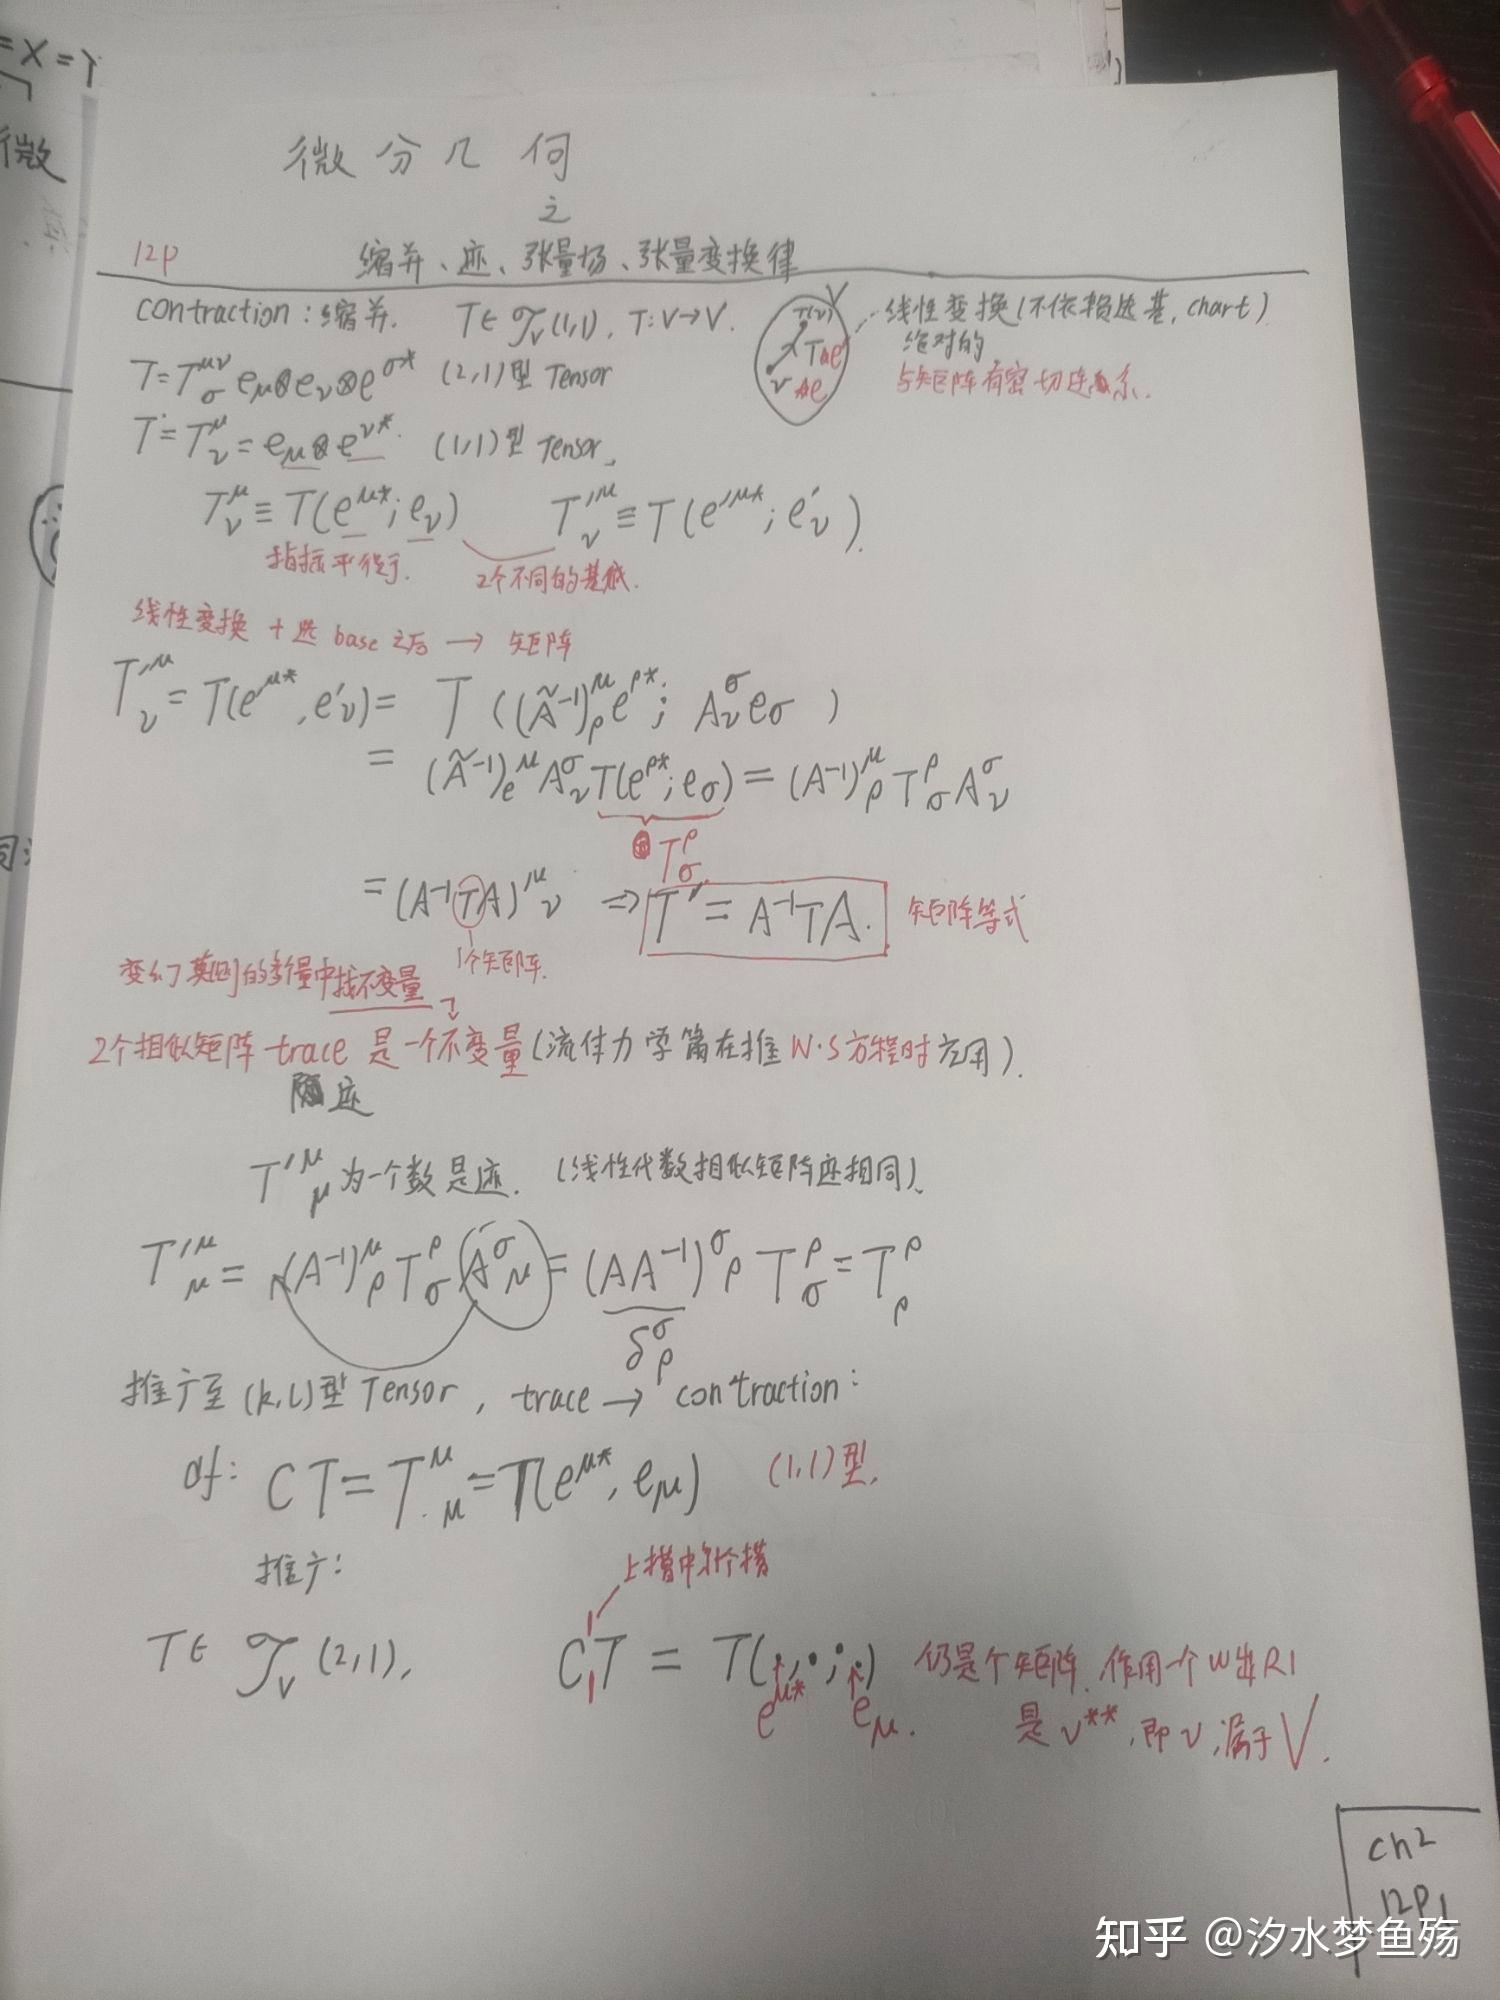 = X = Y
微
微分几何
之
12P 缩并、迹、张量场、张量变换律
contraction:缩并. T∈𝒯_V(1,1), T:V→V. V T(v) T v 线性变换(不依赖选基,chart)
绝对的
与矩阵有密切连系.
T=T^{μν}_σ e_μ⊗e_ν⊗e^{σ*} (2,1)型 Tensor
T=T^μ_ν=e_μ⊗e^{ν*}. (1,1)型 Tensor,
T^μ_ν≡T(e^{μ*};e_ν) T'^μ_ν≡T(e'^{μ*};e'_ν).
指标平衡. 2个不同的基底.
线性变换+选base之后→矩阵
T'^μ_ν=T(e'^{μ*},e'_ν)= T((Ã^{-1})^μ_ρ e^{ρ*}; A^σ_ν e_σ)
= (Ã^{-1})^μ_e A^σ_ν T(e^{ρ*};e_σ)=(A^{-1})^μ_ρ T^ρ_σ A^σ_ν
T^ρ_σ
=(A^{-1}TA)^μ_ν ⇒ T'=A^{-1}TA. 矩阵等式
1个矩阵.
变幻莫测的变量中找不变量
2个相似矩阵 trace 是一个不变量(流体力学篇在推N·S方程时应用).
迹
T'^μ_μ为一个数是迹. (线性代数相似矩阵迹相同).
T'^μ_μ=(A^{-1})^μ_ρ T^ρ_σ A^σ_μ=(AA^{-1})^σ_ρ T^ρ_σ=T^ρ_ρ
δ^σ_ρ
推广至(k,l)型Tensor, trace→contraction:
df: CT=T^μ_μ=T(e^{μ*},e_μ) (1,1)型.
推广:
上槽中第1个槽
T∈𝒯_V(2,1), C^1_1T = T(·,·;·) 仍是个矩阵.作用一个w出R1
e^{μ*} e_μ. 是v**,即v,属于V.
ch2
12P1
知乎 @汐水梦鱼殇